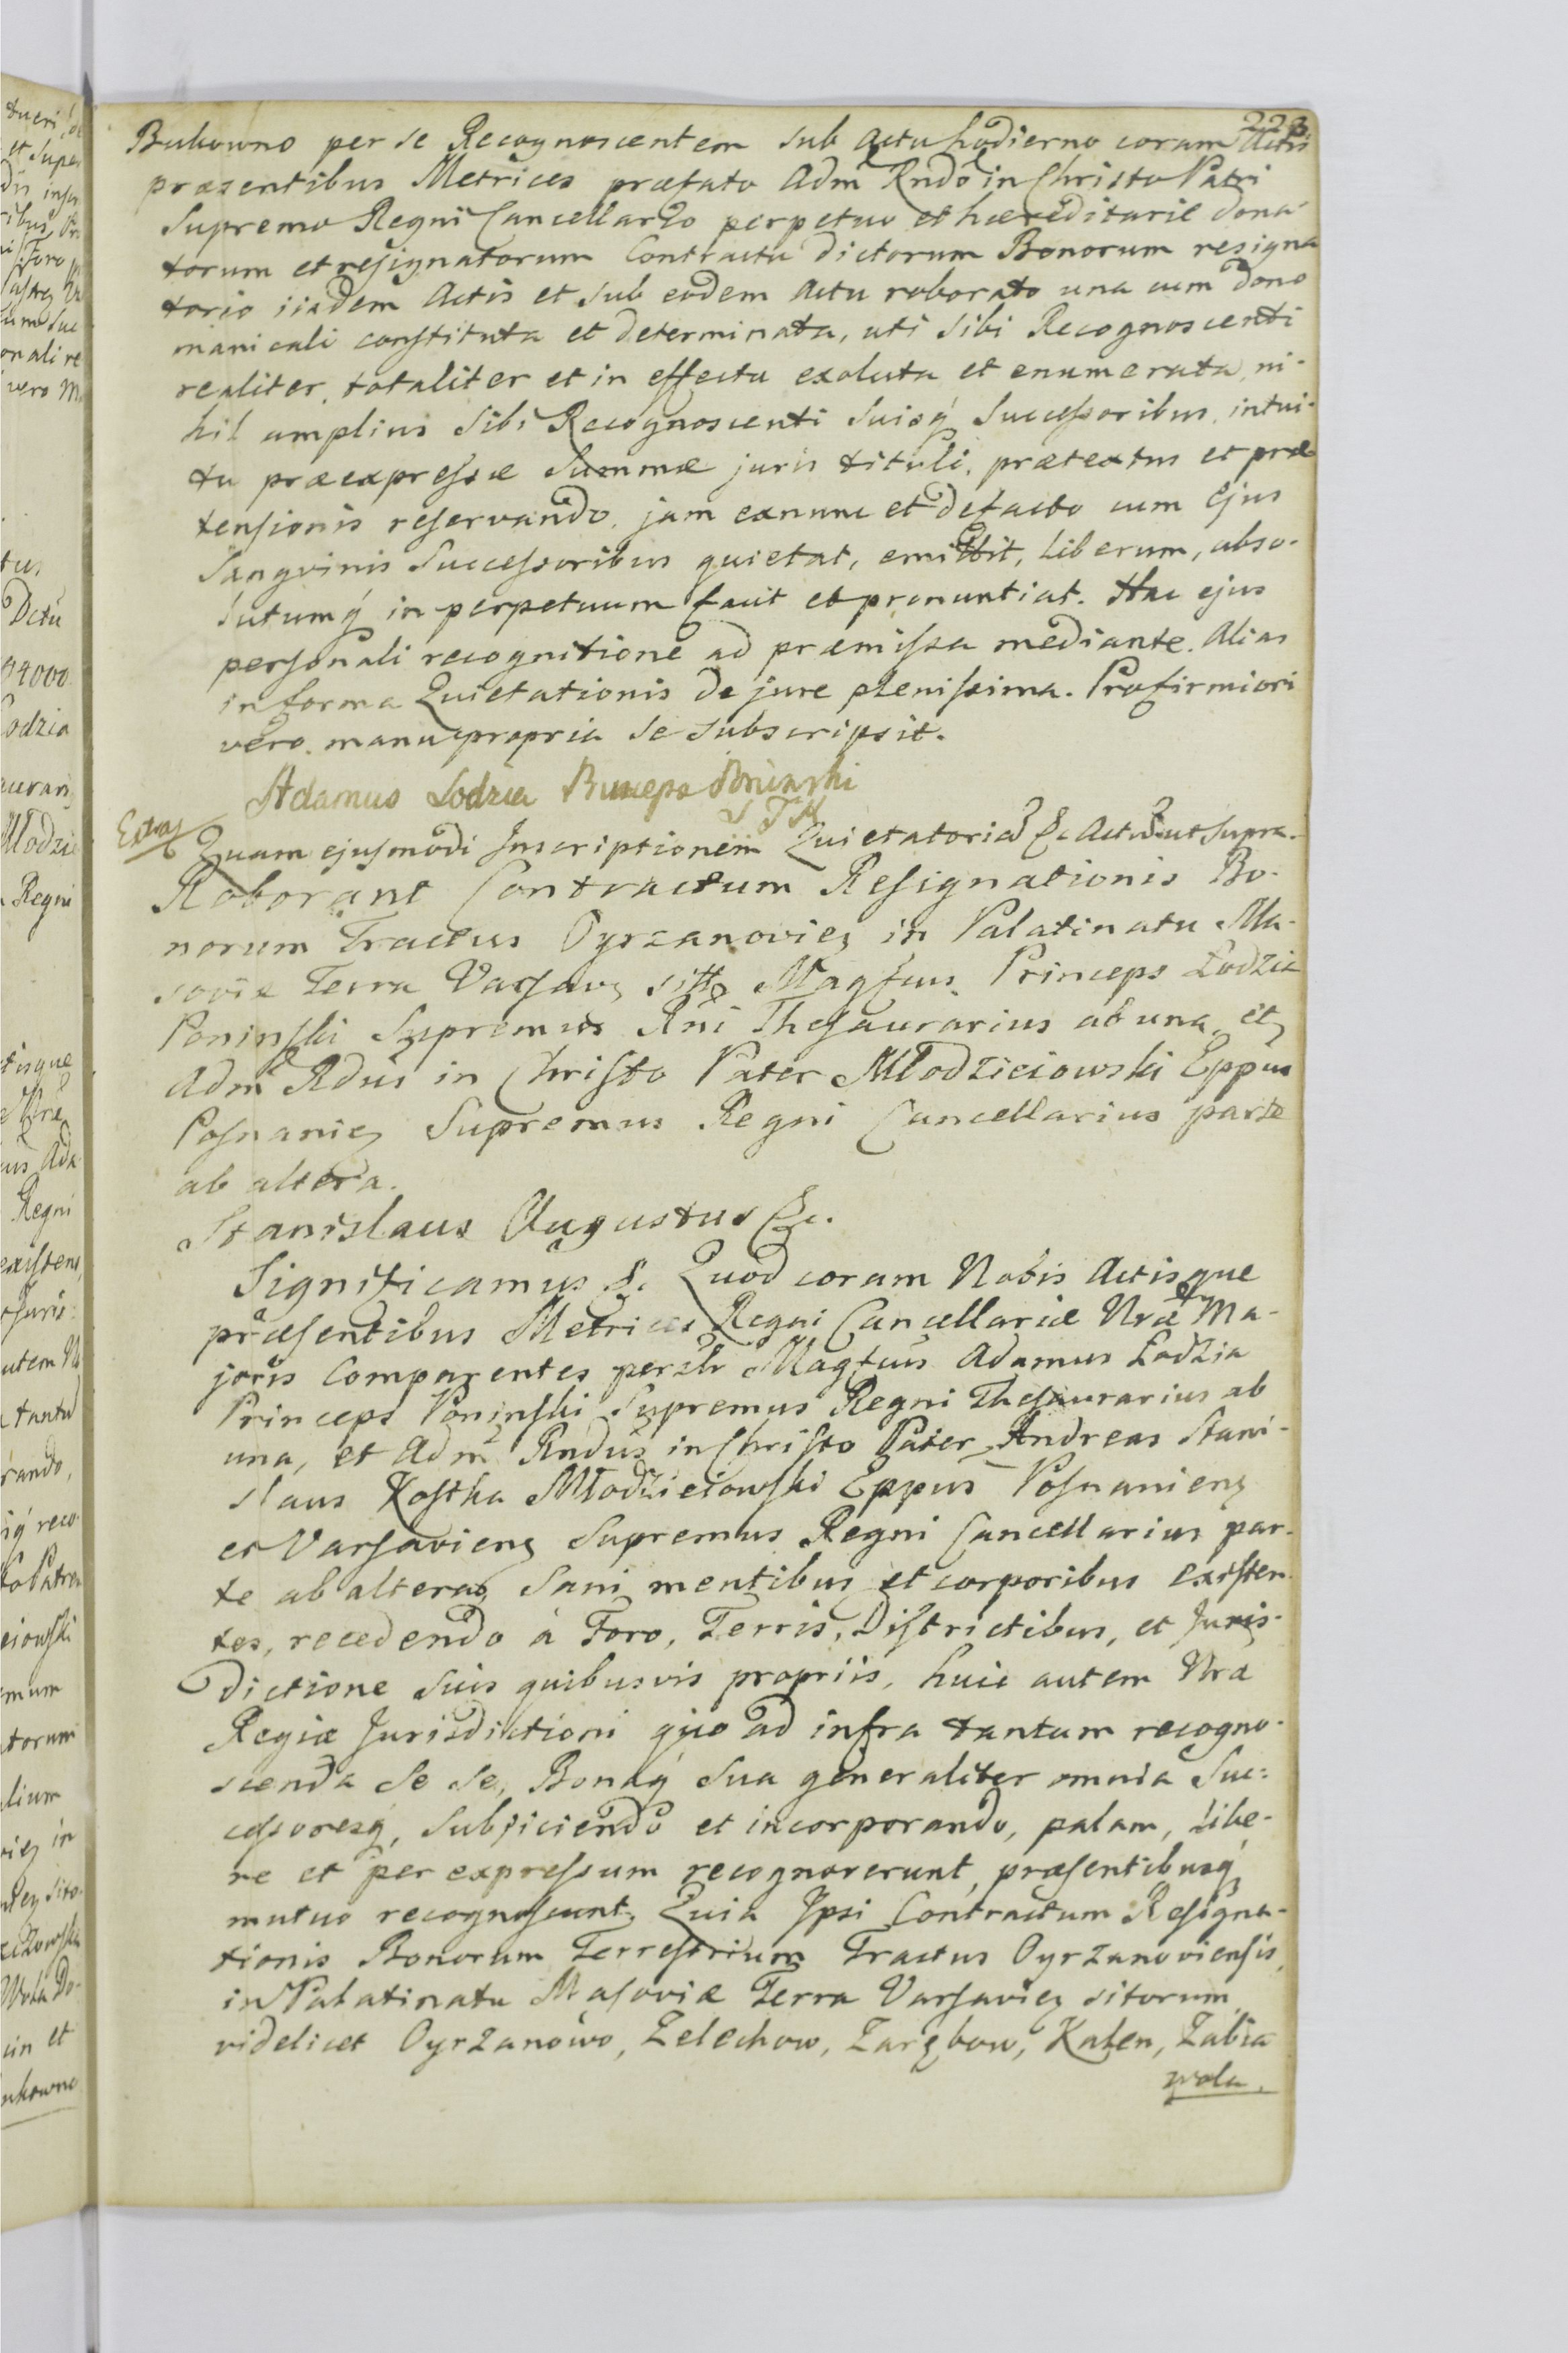 223
Bukowno per se Recognoscentem sub actu hodierno coram Actis
præsentibus Metrices præfato Adm Rndo in Christo Patri
Supremo Regni Cancellario perpetuo et hæreditarie dona-
torum et resignatorum Contractu dictorum Bonorum resigna
torio iisdem Actis et sub eodem actu roborato una cum dono
manicali constituta et determinata, uti sibi Recognoscenti
realiter, totaliter et in effectu exoluta et enumerata, ni-
hil amplius sibi Recognoscenti suisq́ Successoribus, intui-
tu præexpressæ Summæ juris tituli, prætextus et præ
tensionis reservando, jam exnunc et defacto cum ejus
Sangvinis Successoribus quietat, emittit, liberum, abso-
lutumq́ in perpetuum facit et pronuntiat. Hac ejus
personali recognitione ad præmissa mediante. Alias
in forma Quietationis de jure plenissima. Pro firmiori
vero manu propria se subscripsit.
Adamus Lodzia Princeps Poninski
S T K
Quam ejusmodi Inscriptionem Quietatoria &c Actu ut supra.
Roborant Contractum Resignationis Bo-
norum Tractus Oyrzanovien in Palatinatu Ma-
soviæ Terra Varsavien sitt Magfcus Princeps Łodzia
Poninski Supremus Rni Thesaurarius ab una, et
Adm Rdus in Christo Pater Młodzieiowski Eppus
Posnanien Supremus Regni Cancellarius parte
ab altera.
Stanislaus Augustus &c.
Significamus &. Quod coram Nobis Actisque
præsentibus Metrices Regni Cancellariæ Nræ Ma-
joris Comparentes personlr Magfcus Adamus Łodzia
Princeps Poninski Supremus Regni Thesaurarius ab
una, et Adm Rndus in Christo Pater Andreas Stani-
slaus Kostka Młodzieiowski Eppus Posnaniens
et Varsaviens Supremus Regni Cancellarius par-
te ab altera, Sani mentibus et corporibus existen
tes, recedendo à Foro, Terris, Districtibus, et Juris-
dictione suis quibusvis propriis, huic autem Nræ
Regiæ Jurisdictioni quo ad infra tantum recogno-
scenda se se, Bonaq́ sua generaliter omnia Suc-
cessoresq́, subjiciendo et incorporando, palam, libe-
re et per expressum recognoverunt, præsentibusq́
mutuo recognoscunt, Quia Ipsi Contractum Resigna-
tionis Bonorum Terrestrium Tractus Oyrzanoviensis,
in Palatinatu Masoviæ Terra Varsavien sitorum
videlicet Oyrzanowo, Zelechow, Zarębow, Kalen, Zabia
wola.